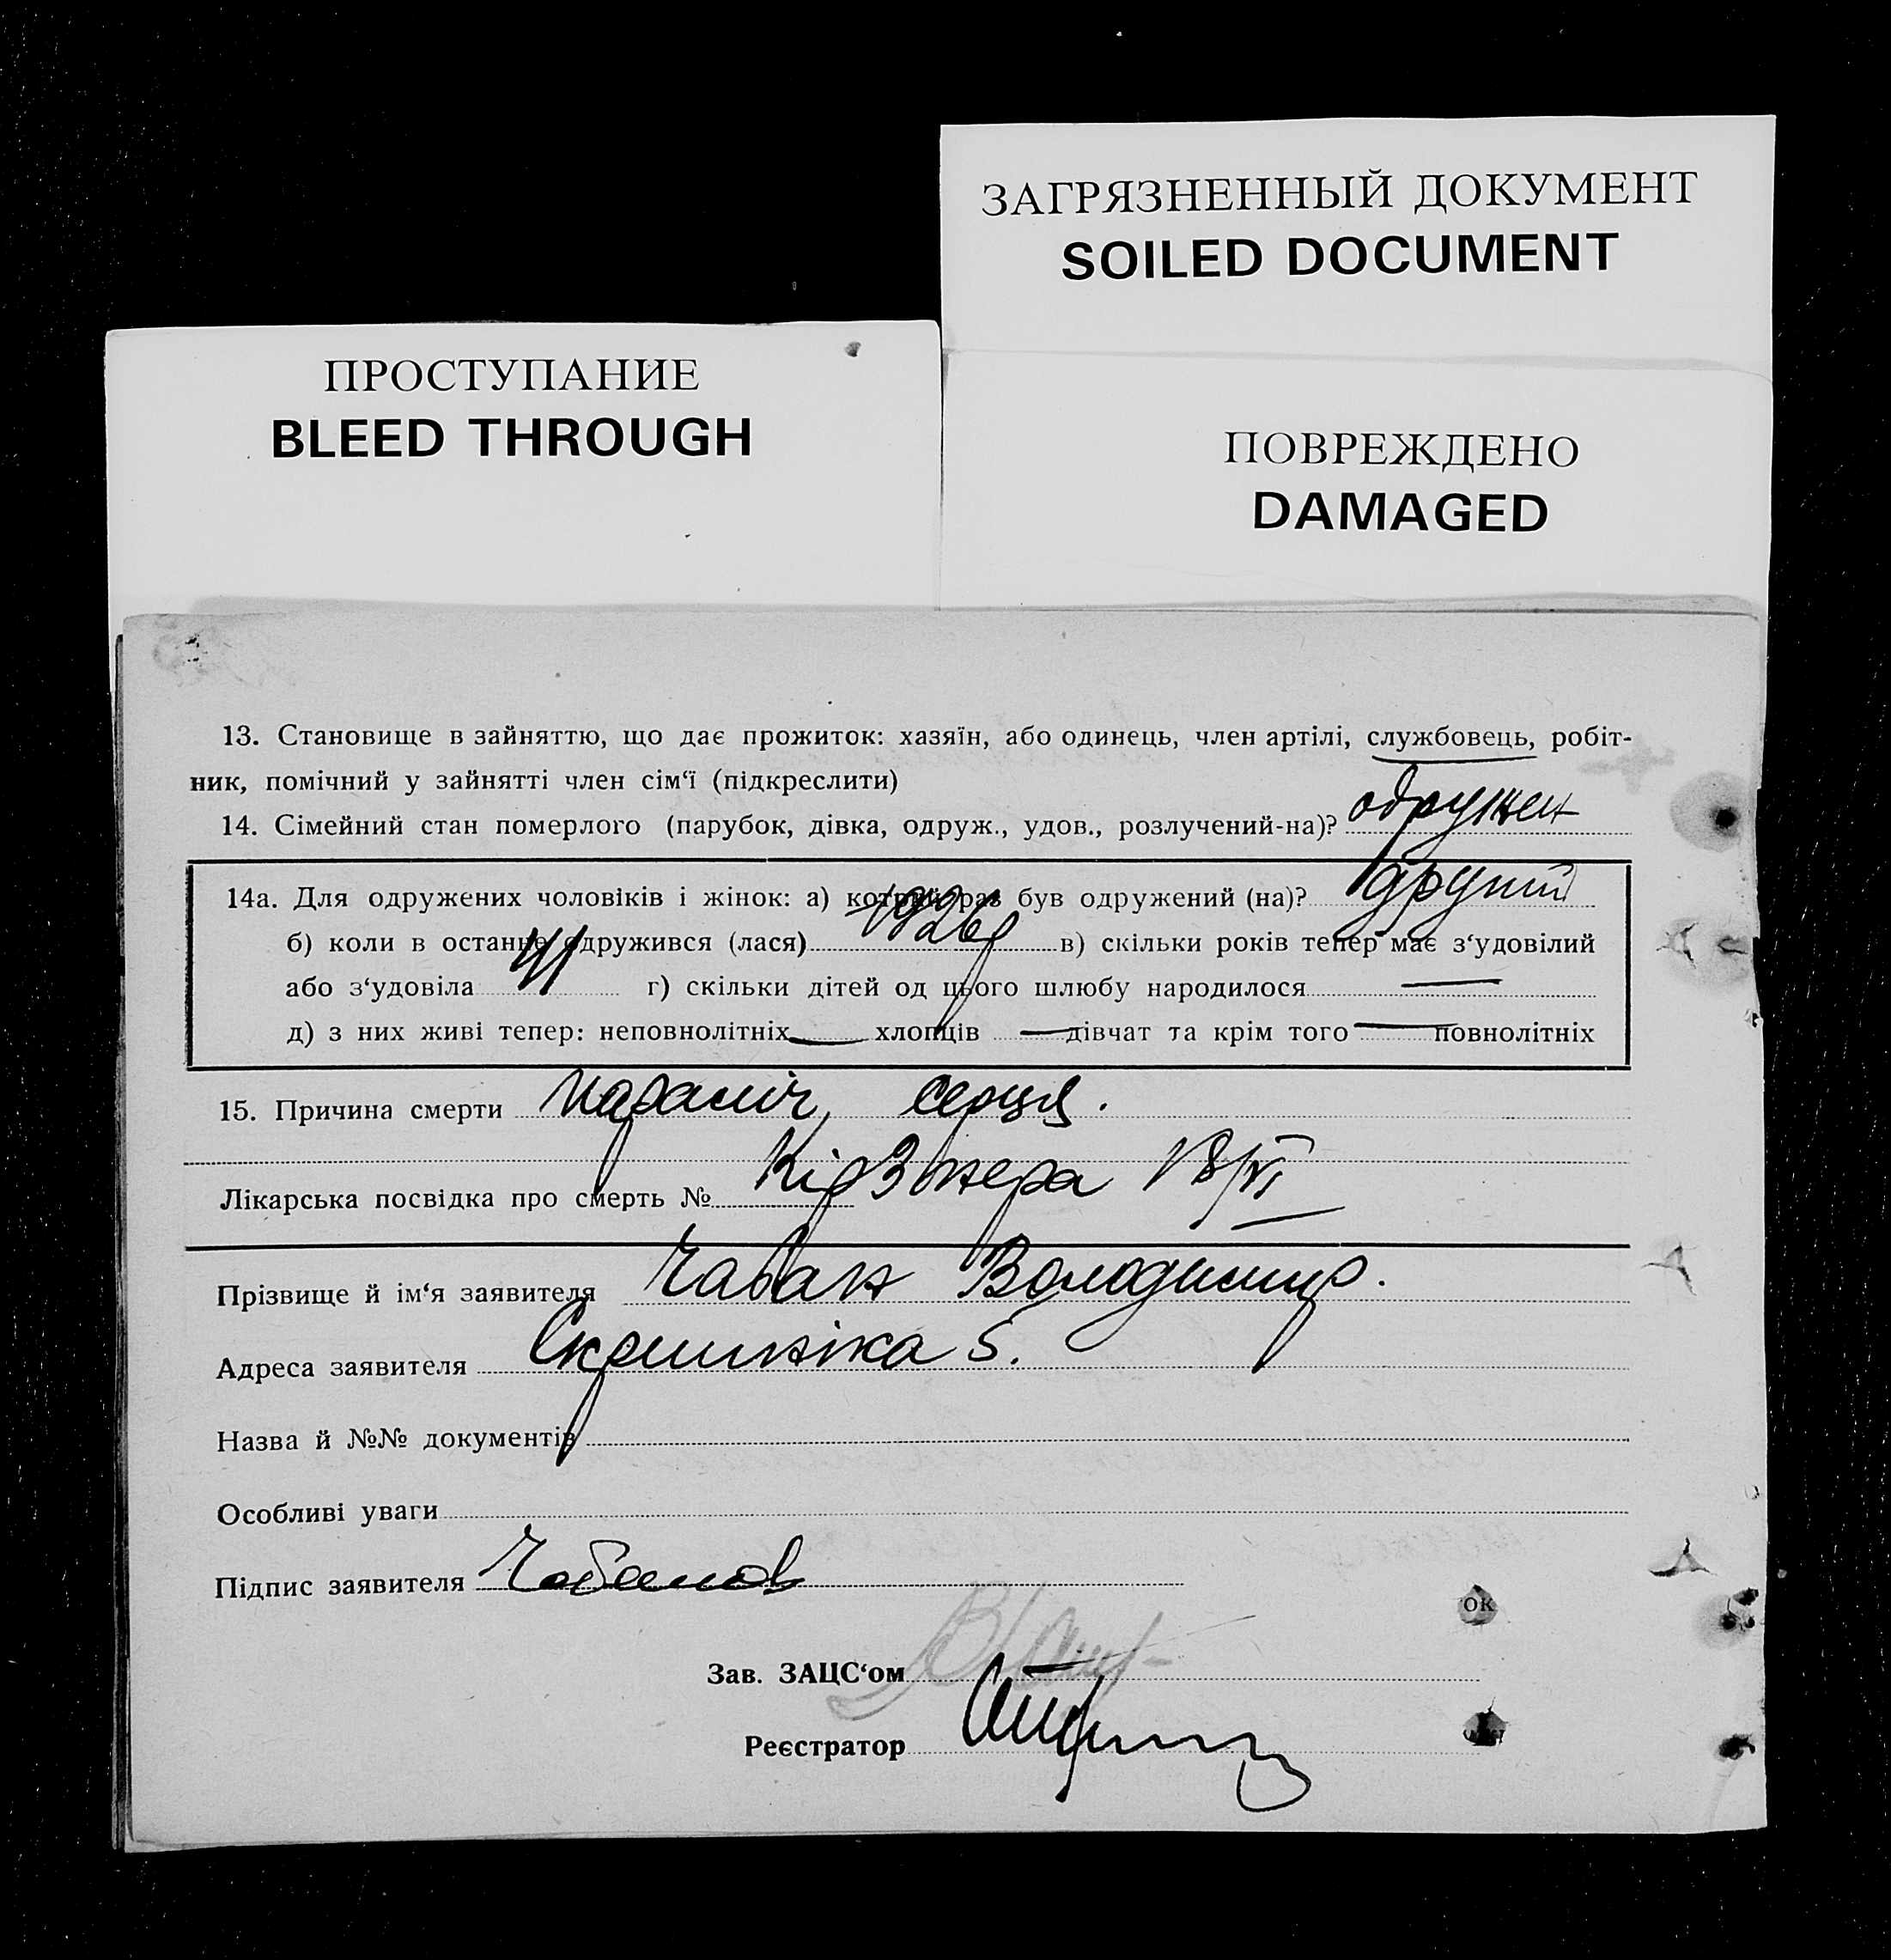 ЗАГРЯЗНЕННЫЙ ДОКУМЕНТ
SOILED DOCUMENT
ПРОСТУПАНИЕ
BLEED THROUGH
ПОВРЕЖДЕНО
DAMAGED
13. Становище в зайняттю, що дає прожиток: хазяїн, або одинець, член артілі, службовець, робіт-
ник, помічний у зайнятті член сім‘ї (підкреслити)
14. Сімейний стан померлого (парубок, дівка, одруж., удов., розлучений-на)? одружен
14а. Для одружених чоловіків і жінок: а) котрий раз був одружений (на)? другий
б) коли в останнє одружився (лася) 1926р в) скільки років тепер має з‘удовілий
або з‘удовіла 41 г) скільки дітей од цього шлюбу народилося —
д) з них живі тепер: неповнолітніх — хлопців — дівчат та крім того — повнолітніх
15. Причина смерти параліч серця.
Лікарська посвідка про смерть № 18/VI
Прізвище й ім‘я заявителя Чабан Володимир.
Адреса заявителя Скрипніка 5.
Назва й №№ документів
Особливі уваги
Підпис заявителя
Зав. ЗАЦС‘ом
ок
Реєстратор